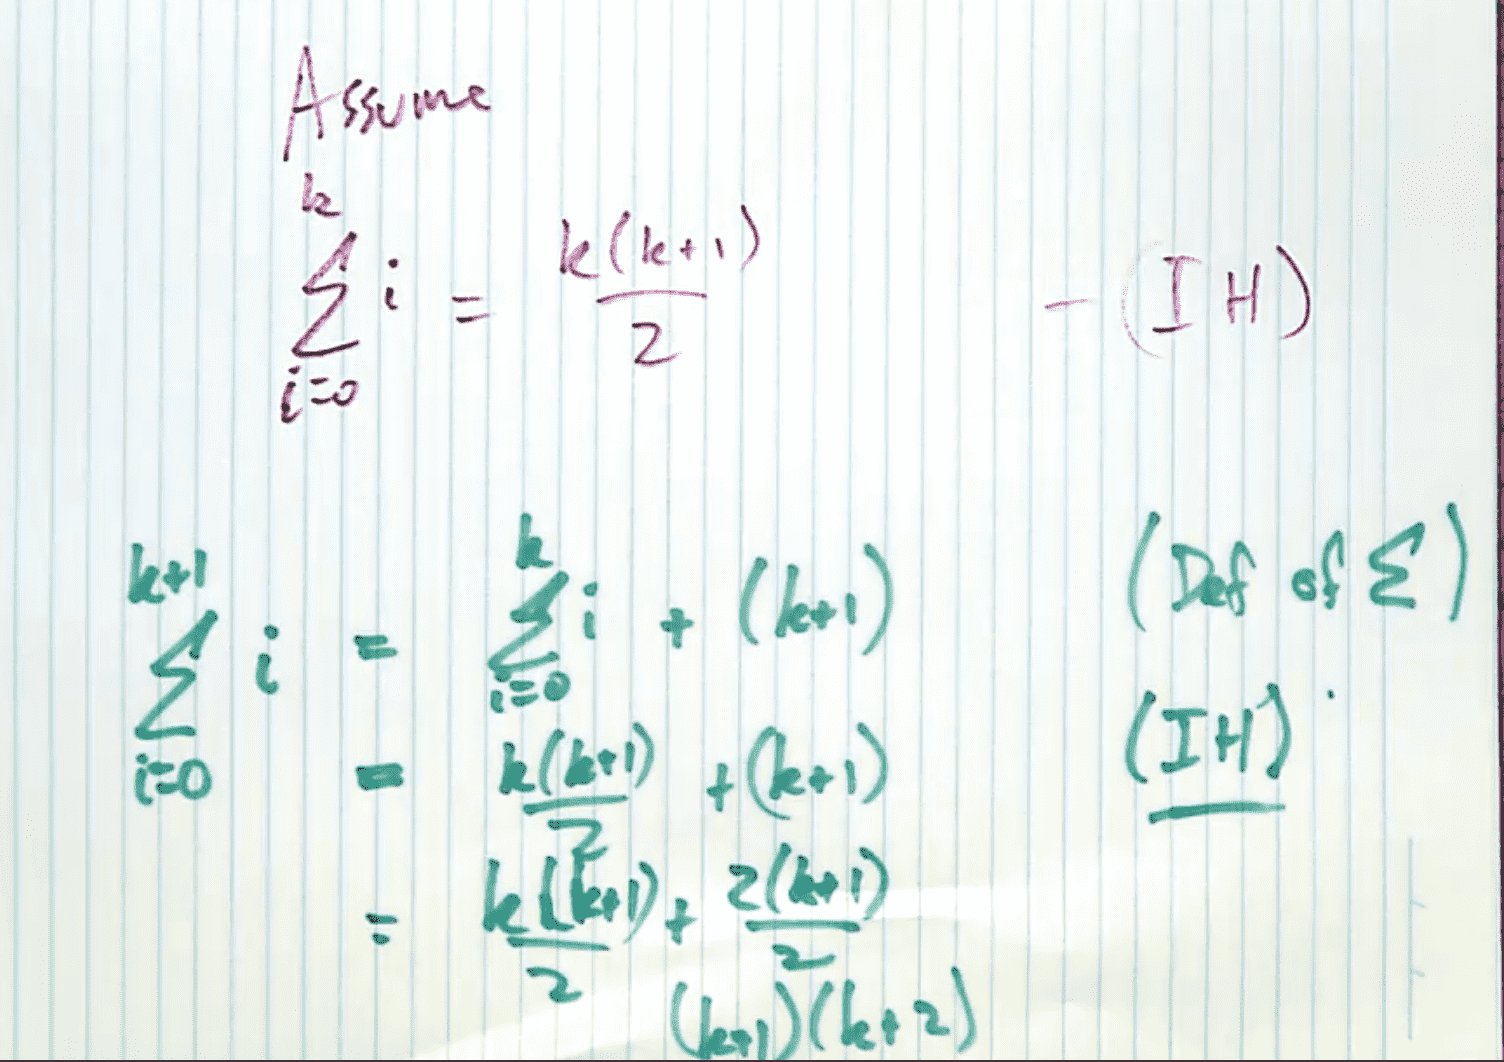 Assume
k
∑ i = k(k+1)/2 - (IH)
i=0
k+1 k
∑ i = ∑ i + (k+1) (Def of ∑)
i=0 i=0
= k(k+1)/2 + (k+1) (IH)
= k(k+1)/2 + 2(k+1)/2
(k+1)(k+2)